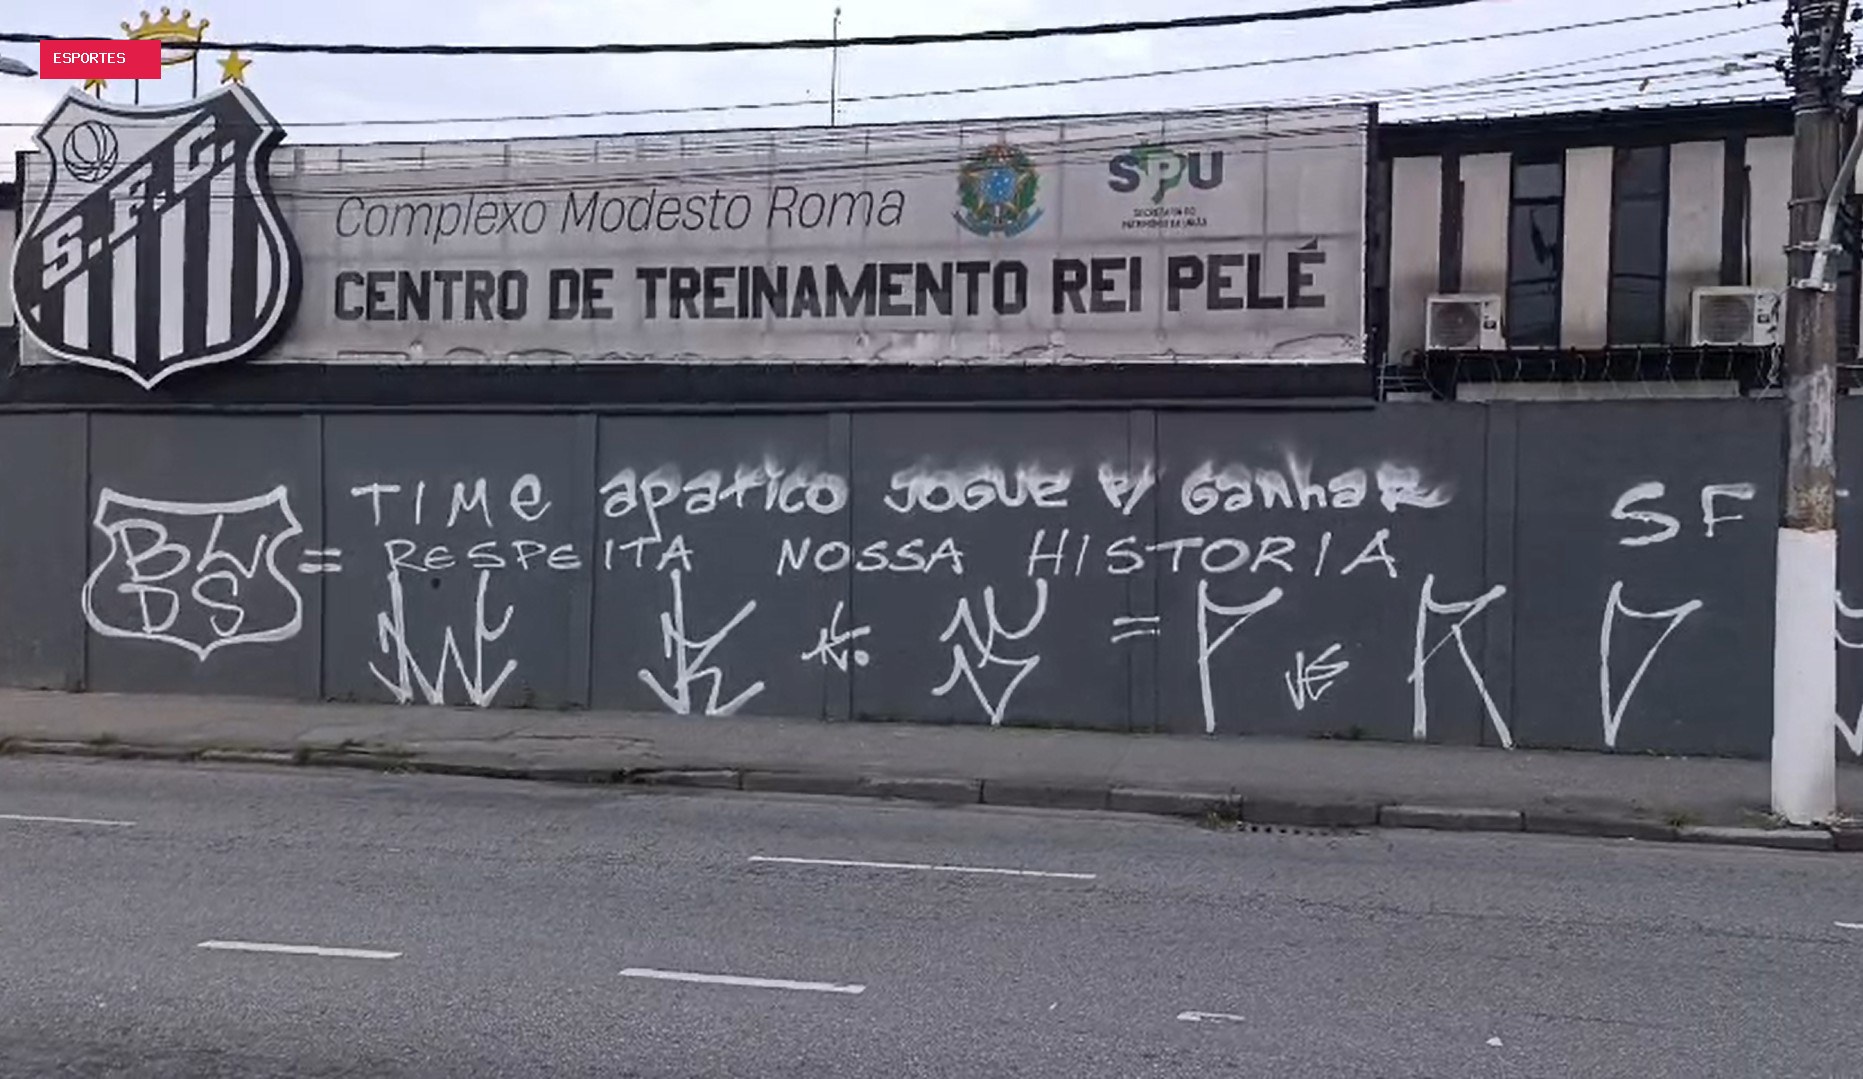 ESPORTES
S.F.C.
Complexo Modesto Roma
CENTRO DE TREINAMENTO REI PELÉ
SPU
SECRETARIA DO
PATRIMÔNIO DA UNIÃO
TIME apatico JOGUE P/ GanhaR
RESPEITA NOSSA HISTORIA
SF
BL
DS